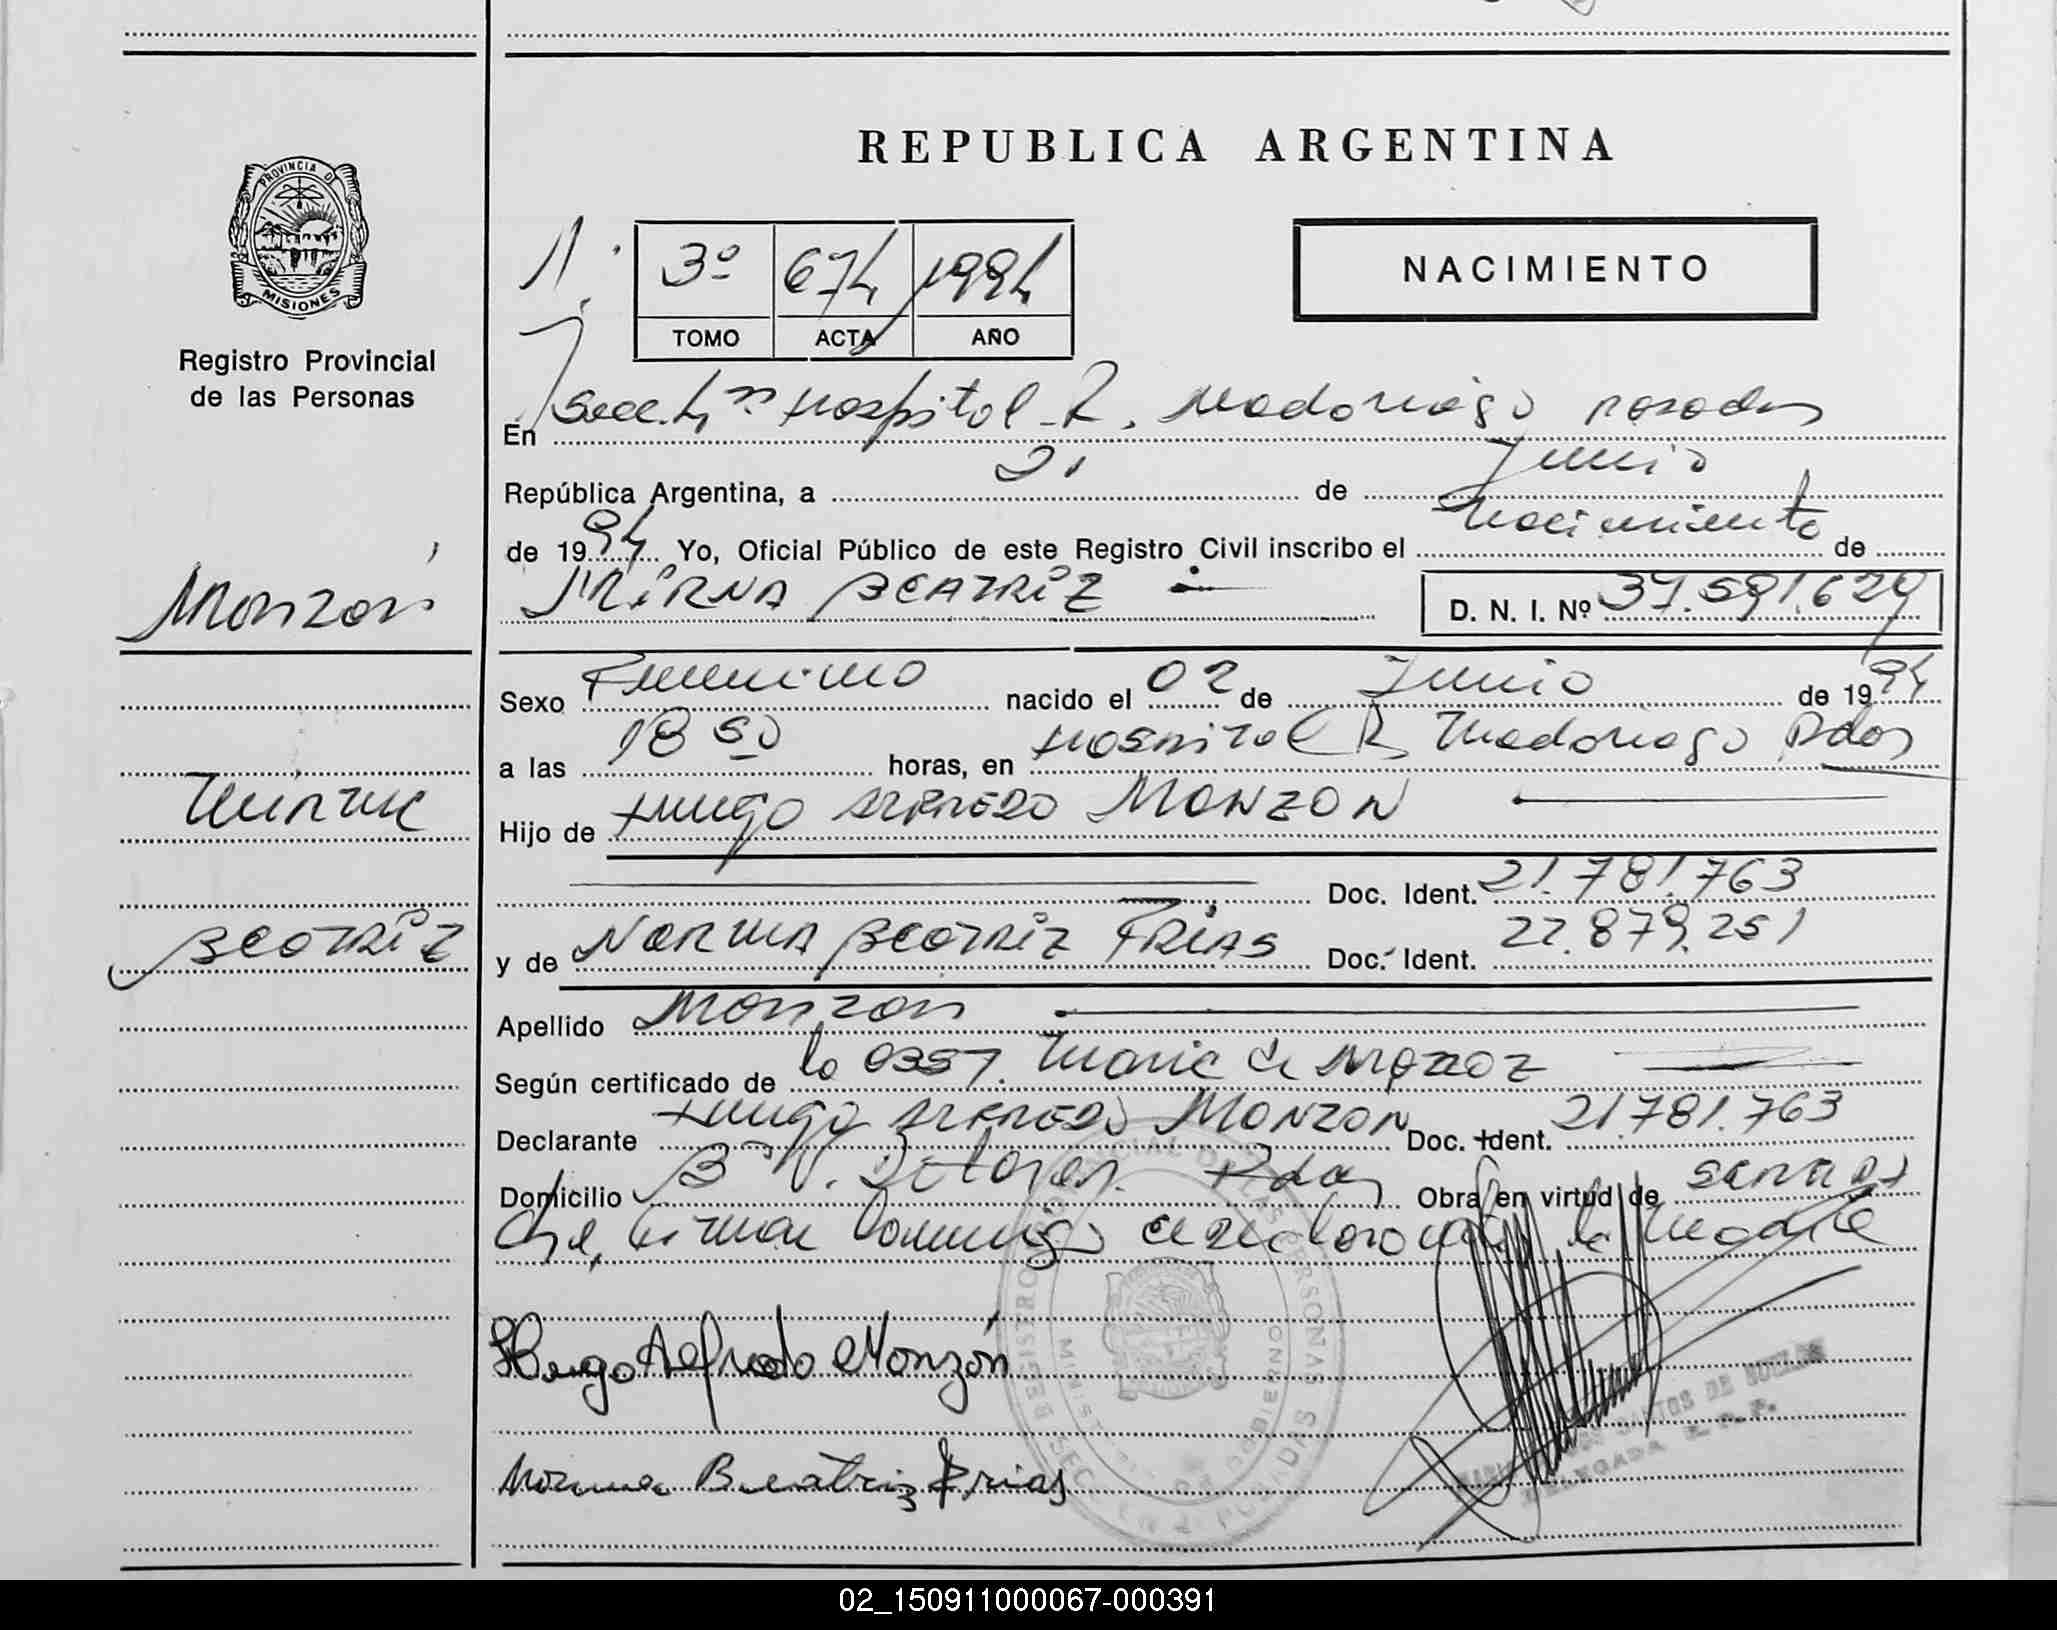 REPUBLICA ARGENTINA
PROVINCIA DE
MISIONES
Registro Provincial
de las Personas
3º 674 1994
TOMO ACTA AÑO
NACIMIENTO
En Secc. Hospital R. Madariaga Posadas
República Argentina, a 21 de Junio
de 1994 Yo, Oficial Público de este Registro Civil inscribo el Nacimiento de
Monzón
MIRNA BEATRIZ D. N. I. Nº 37.591.629
Sexo Femenino nacido el 02 de Junio de 1994
a las 18 50 horas, en Hospital R Madariaga Pdas
Mirna
Hijo de Hugo ALFREDO MONZON
Doc. Ident. 21.781.763
Beatriz
y de NORMA BEATRIZ FRIAS Doc. Ident. 22.879.251
Apellido Monzon
Según certificado de la Obst. Maria de
Declarante Hugo ALFREDO MONZON Doc. Ident. 21.781.763
Domicilio Bº V. Dolores Pdas Obra en virtud de
la Madre
Hugo Alfredo Monzón
Norma Beatriz Frias
DELEGADA
02_150911000067-000391